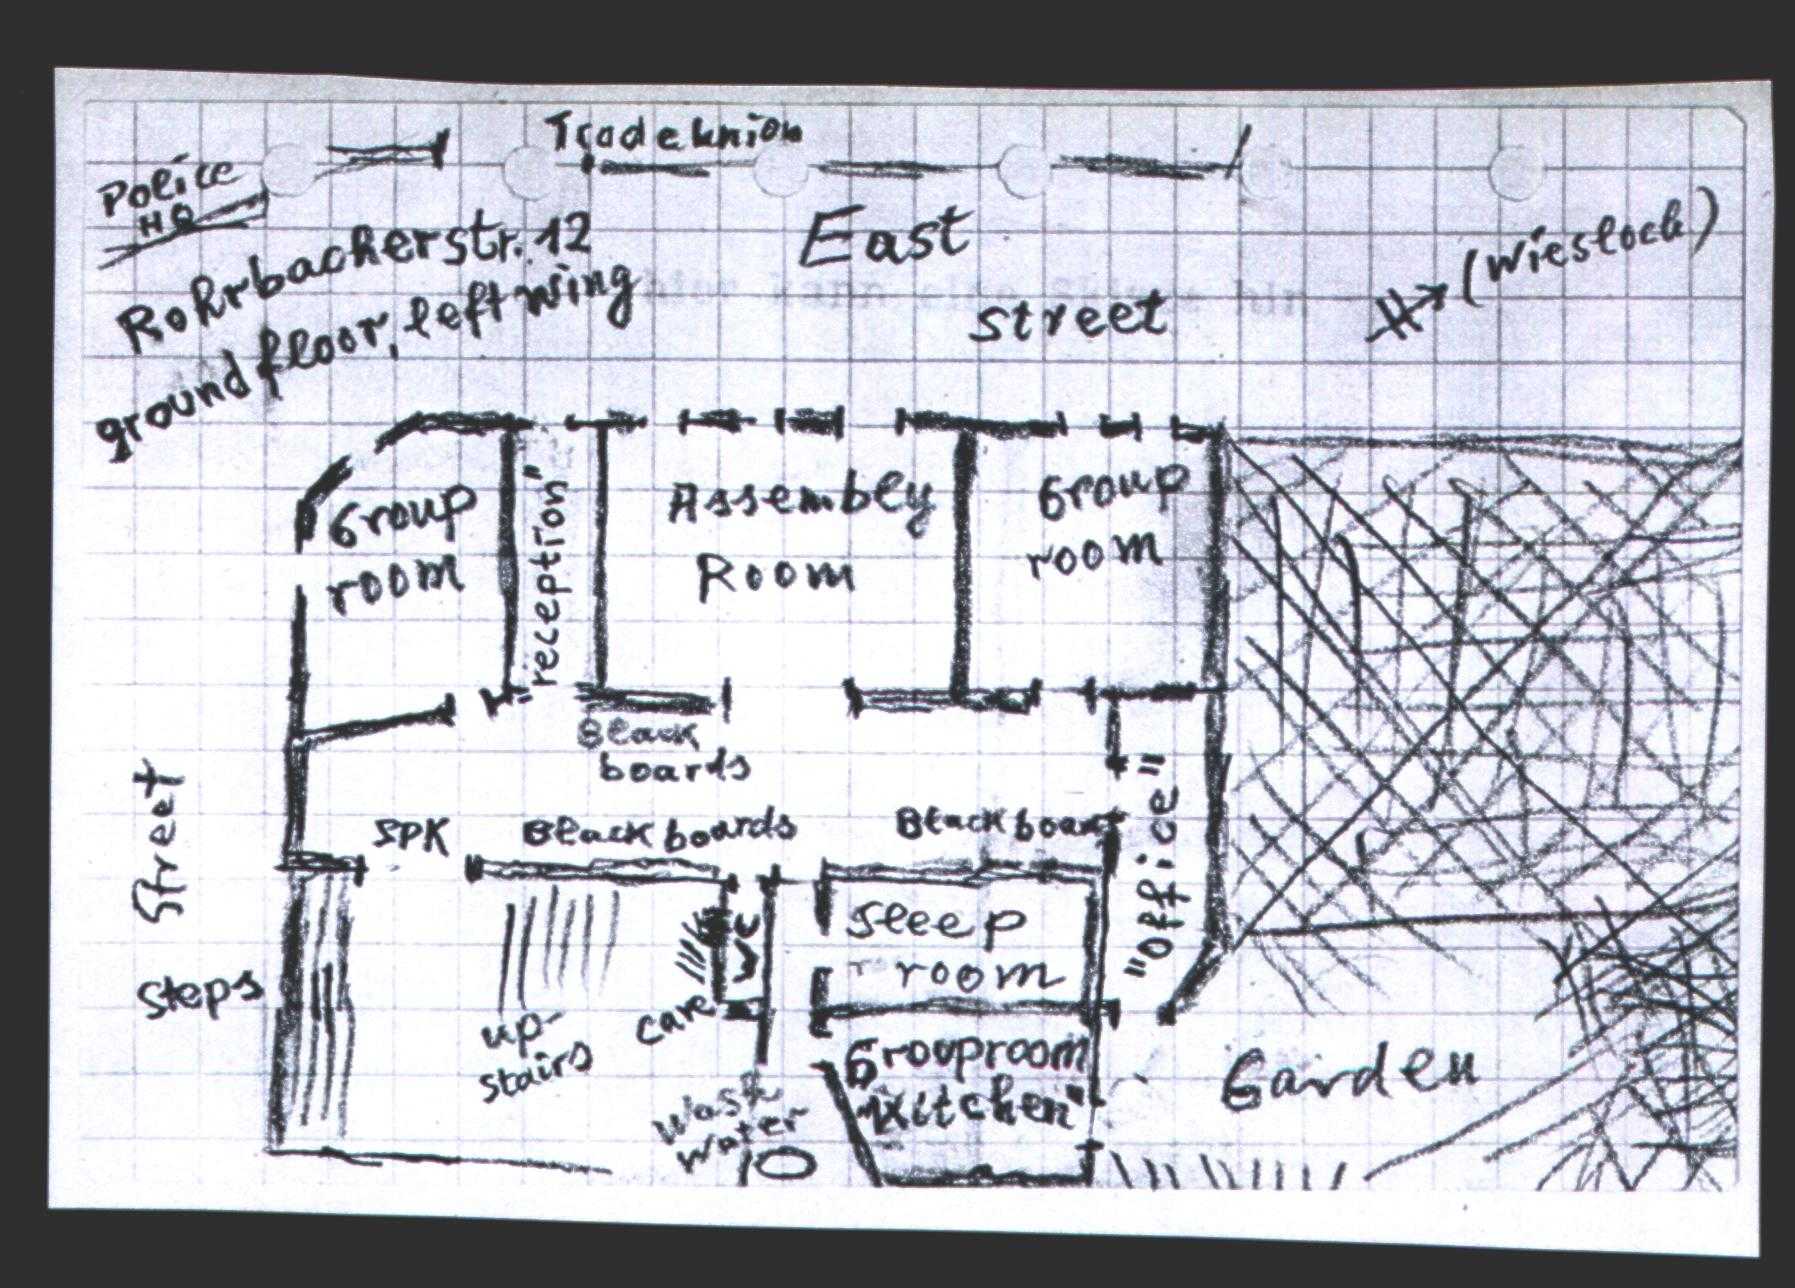 Tradeunion
Police
HQ
Rohrbacherstr. 12
ground floor, left wing
East
street
(Wiesloch)
Group
room
"reception"
Assembly
Room
Group
room
Black
boards
Street
SPK
Blackboards
Blackboard
"office"
Steps
up-
stairs
care
WC
sleep
room
Grouproom
"Kitchen"
Wash
Water
Garden